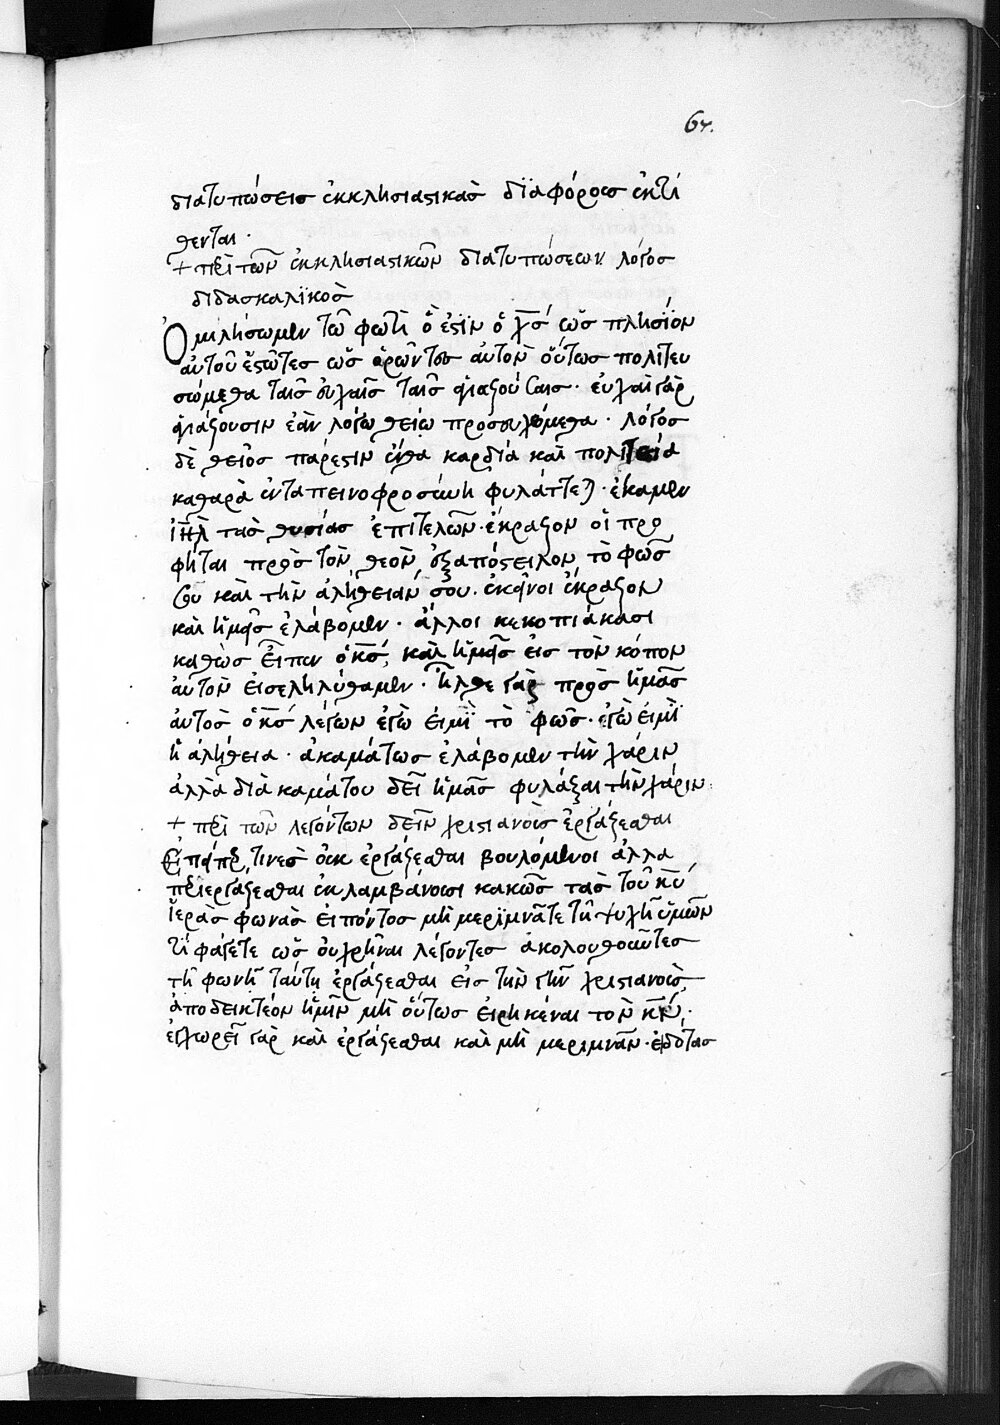 67.
διατυπώσεισ ἐκκλησιαστικὰσ διαφόρουσ ἐκτί
θενται·
+ περὶ τῶν ἐκκλησιαστικῶν διατυπώσεων λόγοσ
διδασκαλϊκὸσ
Ὁμιλήσωμεν τῶ φωτὶ ὅ ἐστϊν ὁ χ̅σ̅ ὡσ πλησϊον
αὐτοῦ ἑστῶτεσ ὡσ ὁρῶντοσ αὐτὸν οὕτωσ πολιτευ
σώμεθα ταῖσ εὐχαῖσ ταῖσ ἁγιαζούσαισ· εὐχαὶ γὰρ
ἁγιάζουσιν ἐὰν λόγω θείω προσευχόμεθα· λόγοσ
δὲ θεῖοσ πάρεστιν ἔνθα καρδία καὶ πολιτεία
καθαρὰ ἐν ταπεινοφροσύνη φυλάττεται· ἔκαμεν
ἰ̅η̅λ̅ τὰσ θυσίασ ἐπιτελῶν· ἔκραζον οἱ προ
φῆται πρὸσ τὸν θεὸν, ἐξαπόστειλον τὸ φῶσ
σου καὶ τὴν ἀλήθειάν σου· ἐκεῖνοι ἔκραζον
καὶ ἡμεῖσ ἐλάβομεν· ἄλλοι κεκοπιάκασι
καθὼσ εἶπεν ὁ κ̅σ̅, καὶ ἡμεῖσ εἰσ τὸν κόπον
αὐτῶν εἰσεληλύθαμεν· ἦλθε γὰρ πρὸσ ἡμᾶσ
αὐτὸσ ὁ κ̅σ̅ λέγων ἐγὼ εἰμϊ τὸ φῶσ· ἐγὼ εἰμϊ
ἡ ἀλήθεια· ἀκαμάτωσ ἐλάβομεν τὴν χάριν
ἀλλὰ διὰ καμάτου δεῖ ἡμᾶσ φυλάξαι τὴν χάριν:
+ περὶ τῶν λεγόντων δεῖν χριστιανοῖσ ἐργάζεσθαι
Ἐπείπερ τινεσ οὐκ ἐργάζεσθαι βουλόμενοι ἀλλα
περιεργάζεσθαι ἐκλαμβάνουσι κακῶσ τὰσ τοῦ κ̅υ̅
ἱερὰσ φωνὰσ εἰπόντοσ μὴ μεριμνᾶτε τῆ ψυχῆ ὑμῶν
τί φάγετε ὡσ οὐ χρῆναι λέγοντεσ ἀκολουθοῦντεσ
τῆ φωνῆ ταύτη ἐργάζεσθαι εἰσ τὴν γῆν χριστιανοὺσ,
ἀποδεικτέον ἡμῖν μὴ οὕτωσ εἰρηκέναι τὸν κ̅ν̅·
ἐγχωρεῖ γὰρ καὶ ἐργάζεσθαι καὶ μὴ μεριμνᾶν·